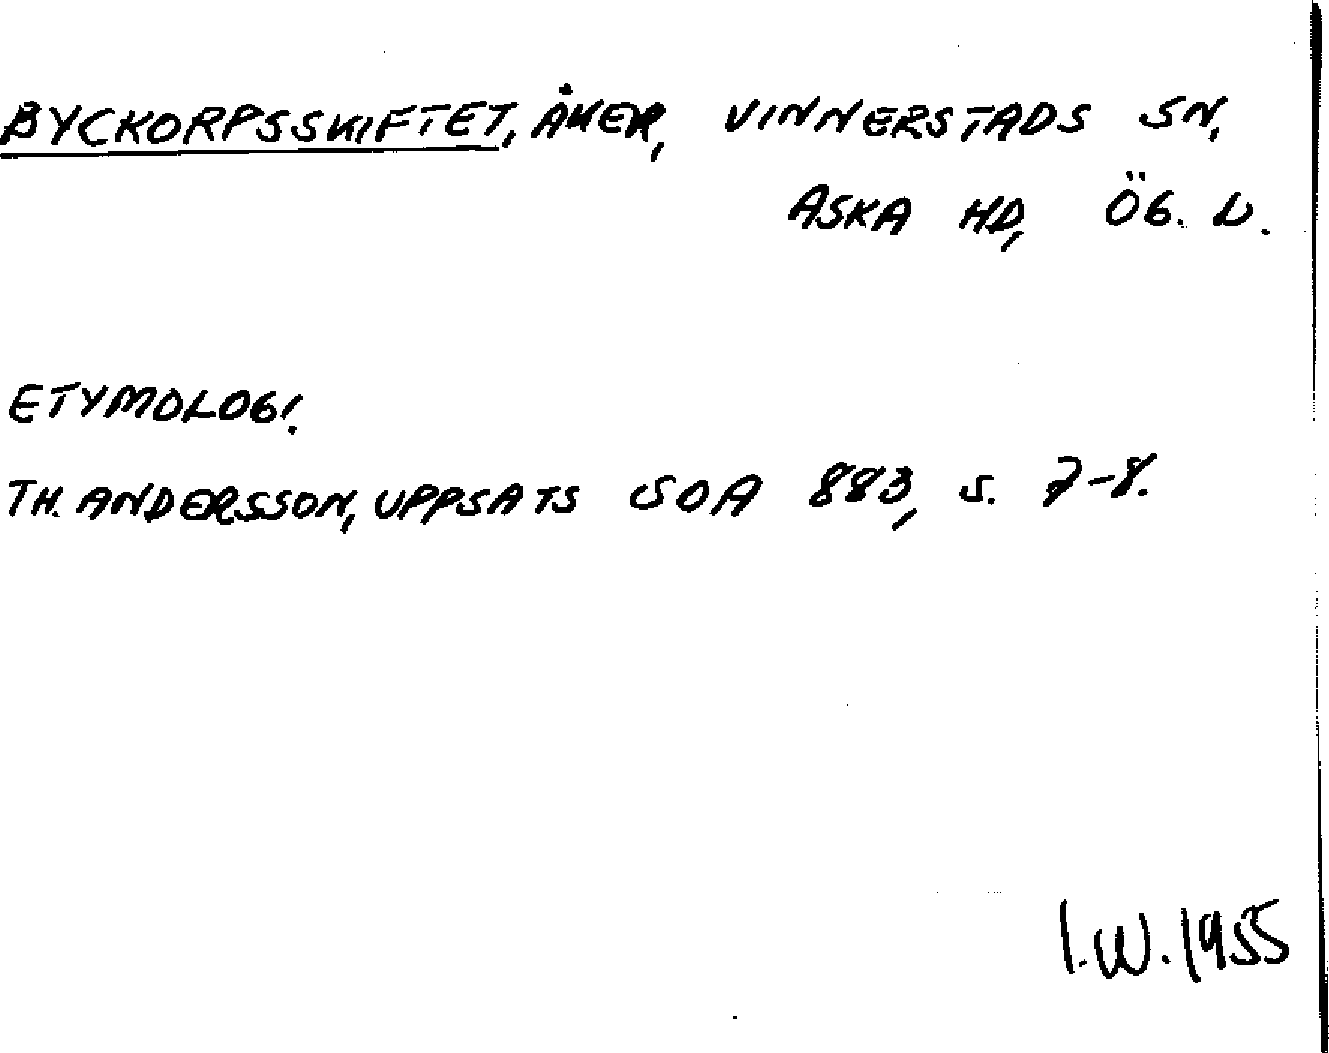 BYCKORPSSKIFTET, ÅKER, VINNERSTADS SN,
ASKA HD, ÖG. L.
ETYMOLOGI.
TH. ANDERSSON, UPPSATS SOA 883, S. 7-8.
I.W. 1955